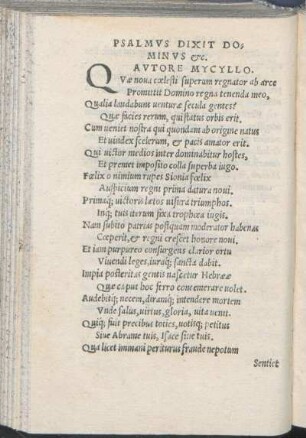 PSALMVS DIXIT DO-
MINVS &c.
AVTORE MYCYLLO.
QVæ noua cœlesti superum regnator ab arce
Promittit Domino regna tenenda meo,
Qualia laudabunt uenturæ secula gentes?
Quæ facies rerum, qui status orbis erit.
Cum ueniet nostra qui quondam ab origine natus
Et uindex scelerum, & pacis amator erit.
Qui uictor medios inter dominabitur hostes,
Et premet imposito colla superba iugo.
Fœlix o nimium rupes Sionia fœlix
Auspicium regni prima datura noui.
Primaq; uictoris lætos uisura triumphos.
Inq; tuis iterum fixa trophæa iugis.
Nam subito patrias postquam moderator habenas
Cœperit, & regni crescet honore noui.
Et iam purpureo consurgens clarior ortu
Viuendi leges, iuraq; sancta dabit.
Impia posteritas gentis nascetur Hebrææ
Quæ caput hoc ferro contemerare uolet.
Audebitq; necem, diramq; intendere mortem
Vnde salus, uirtus, gloria, uita uenit.
Quiq; fuit precibus toties, uotisq; petitus
Siue Abrame tuis, Isace siue tuis.
Qua licet immani periturus fraude nepotum
Sentiet